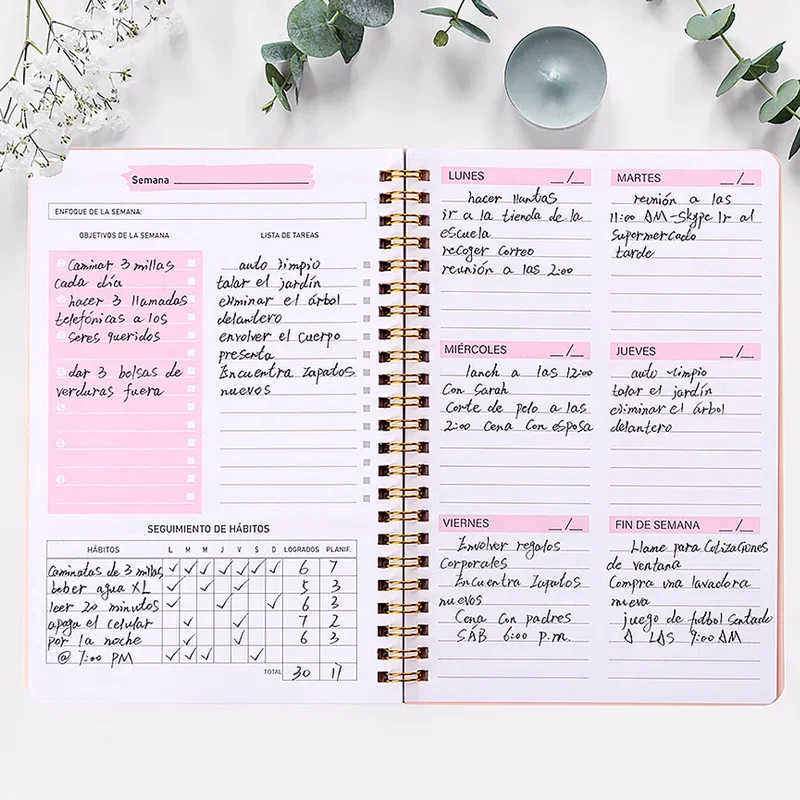 Semana
ENFOQUE DE LA SEMANA:
OBJETIVOS DE LA SEMANA
Caminar 3 millas
cada día
hacer 3 llamadas
telefónicas a los
seres queridos
dar 3 bolsas de
verduras fuera
LISTA DE TAREAS
auto limpio
talar el jardín
eliminar el árbol
delantero
envolver el cuerpo
presenta
Encuentra zapatos
nuevos
SEGUIMIENTO DE HÁBITOS
HÁBITOS L M M J V S D LOGRADOS PLANIF.
Caminatas de 3 millas ✓ ✓ ✓ ✓ ✓ ✓ ✓ 6 7
beber agua XL ✓ ✓ ✓ 5 3
leer 20 minutos ✓ ✓ ✓ 6 3
apaga el celular ✓ ✓ 7 2
por la noche ✓ ✓ 6 3
@ 7:00 PM ✓ ✓ ✓ ✓
TOTAL 30 17
LUNES __/__
hacer llantas
ir a la tienda de la
escuela
recoger correo
reunión a las 2:00
MARTES __/__
reunión a las
11:00 AM-Skype Ir al
Supermercado
tarde
MIÉRCOLES __/__
lanch a las 12:00
Con Sarah
Corte de pelo a las
2:00 Cena Con esposa
JUEVES __/__
auto limpio
talar el jardín
eliminar el árbol
delantero
VIERNES __/__
Envolver regalos
Corporales
Encuentra Zapatos
nuevos
Cena Con padres
SÁB 6:00 p.m.
FIN DE SEMANA __/__
Llame para Cotizaciones
de ventana
Compra una lavadora
nueva
juego de fútbol Sentado
A LAS 9:00 AM